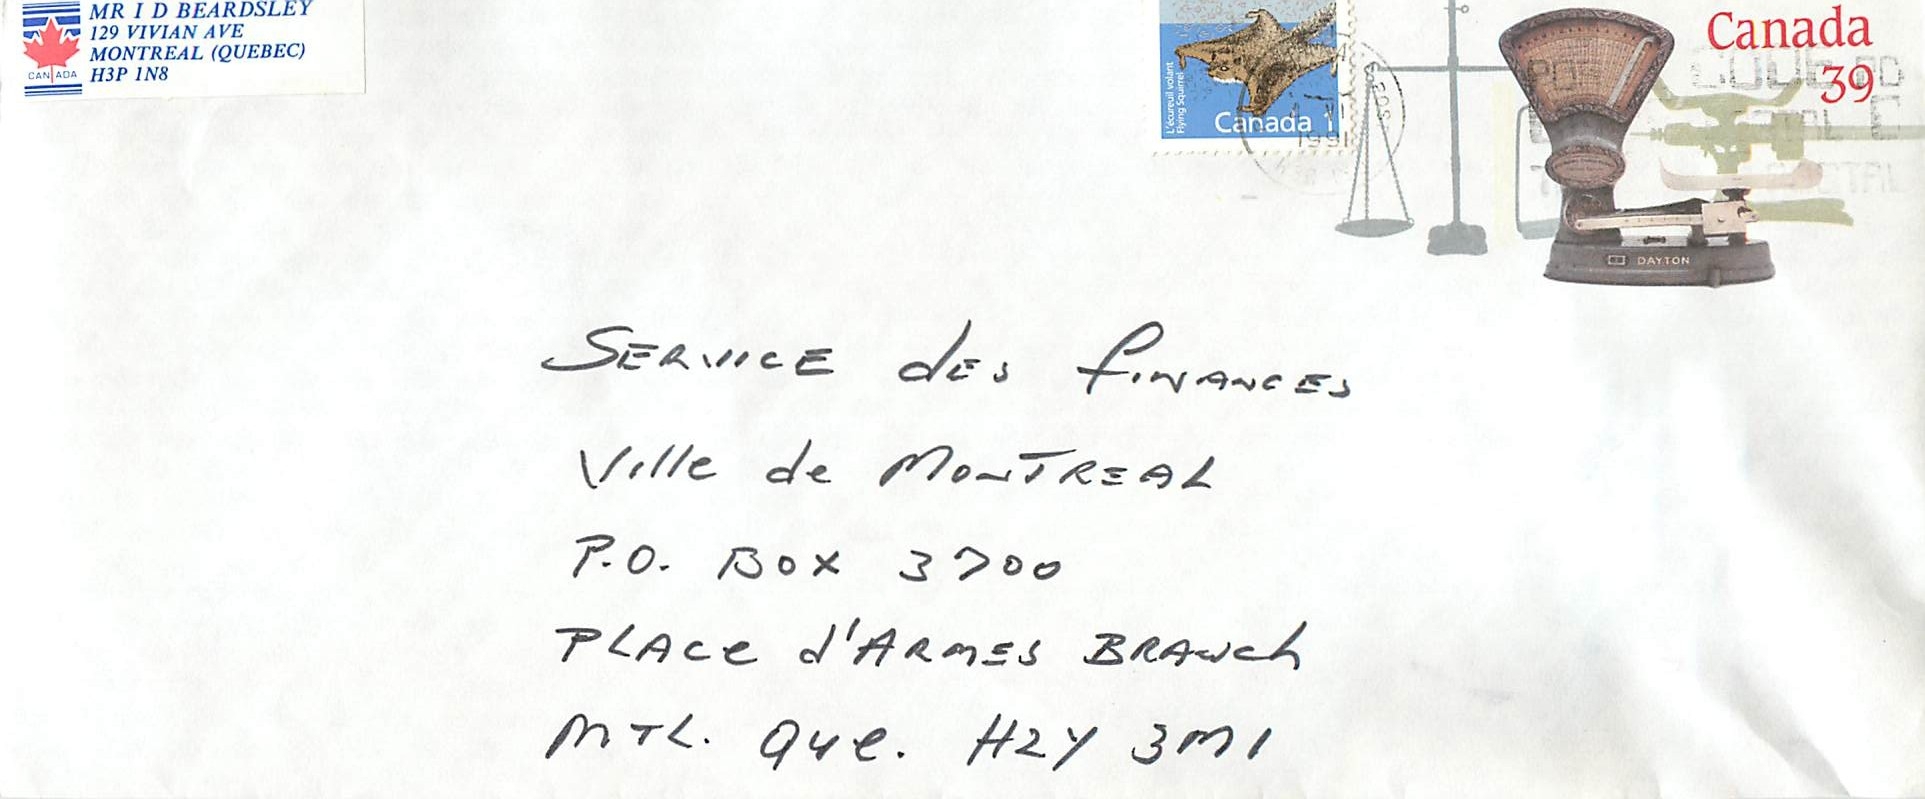 MR I D BEARDSLEY
129 VIVIAN AVE
MONTREAL (QUEBEC)
H3P 1N8
CANADA
L'écureuil volant
Flying Squirrel
Canada 1
1991
Canada
39
CODE
DAYTON
SERVICE des finANCES
Ville de MONTREAL
P.O. BOX 3700
PLACe d'ARMES BRANch
MTL. Que. H2Y 3M1